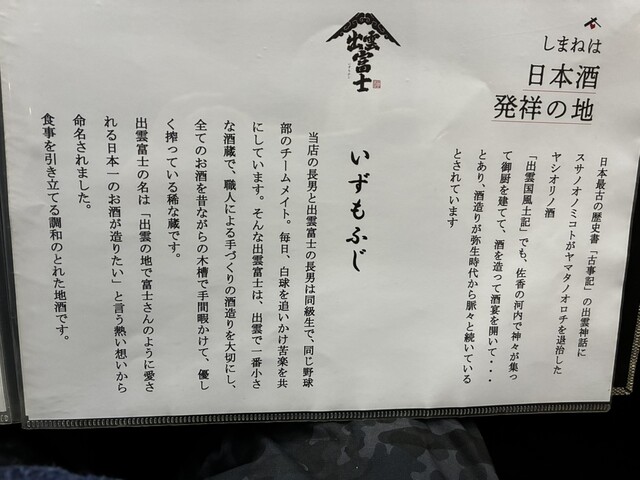 しまねは
日本酒
発祥の地
日本最古の歴史書「古事記」の出雲神話に
スサノオノミコトがヤマタノオロチを退治した
ヤシオリノ酒
「出雲国風土記」でも、佐香の河内で神々が集っ
て御厨を建てて、酒を造って酒宴を開いて・・・
とあり、酒造りが弥生時代から脈々と続いている
とされています
出雲富士
いずもふじ
当店の長男と出雲富士の長男は同級生で、同じ野球
部のチームメイト。毎日、白球を追いかけ苦楽を共
にしています。そんな出雲富士は、出雲で一番小さ
な酒蔵で、職人による手づくりの酒造りを大切にし、
全てのお酒を昔ながらの木槽で手間暇かけて、優し
く搾っている稀な蔵です。
出雲富士の名は「出雲の地で富士さんのように愛さ
れる日本一のお酒が造りたい」と言う熱い想いから
命名されました。
食事を引き立てる調和のとれた地酒です。